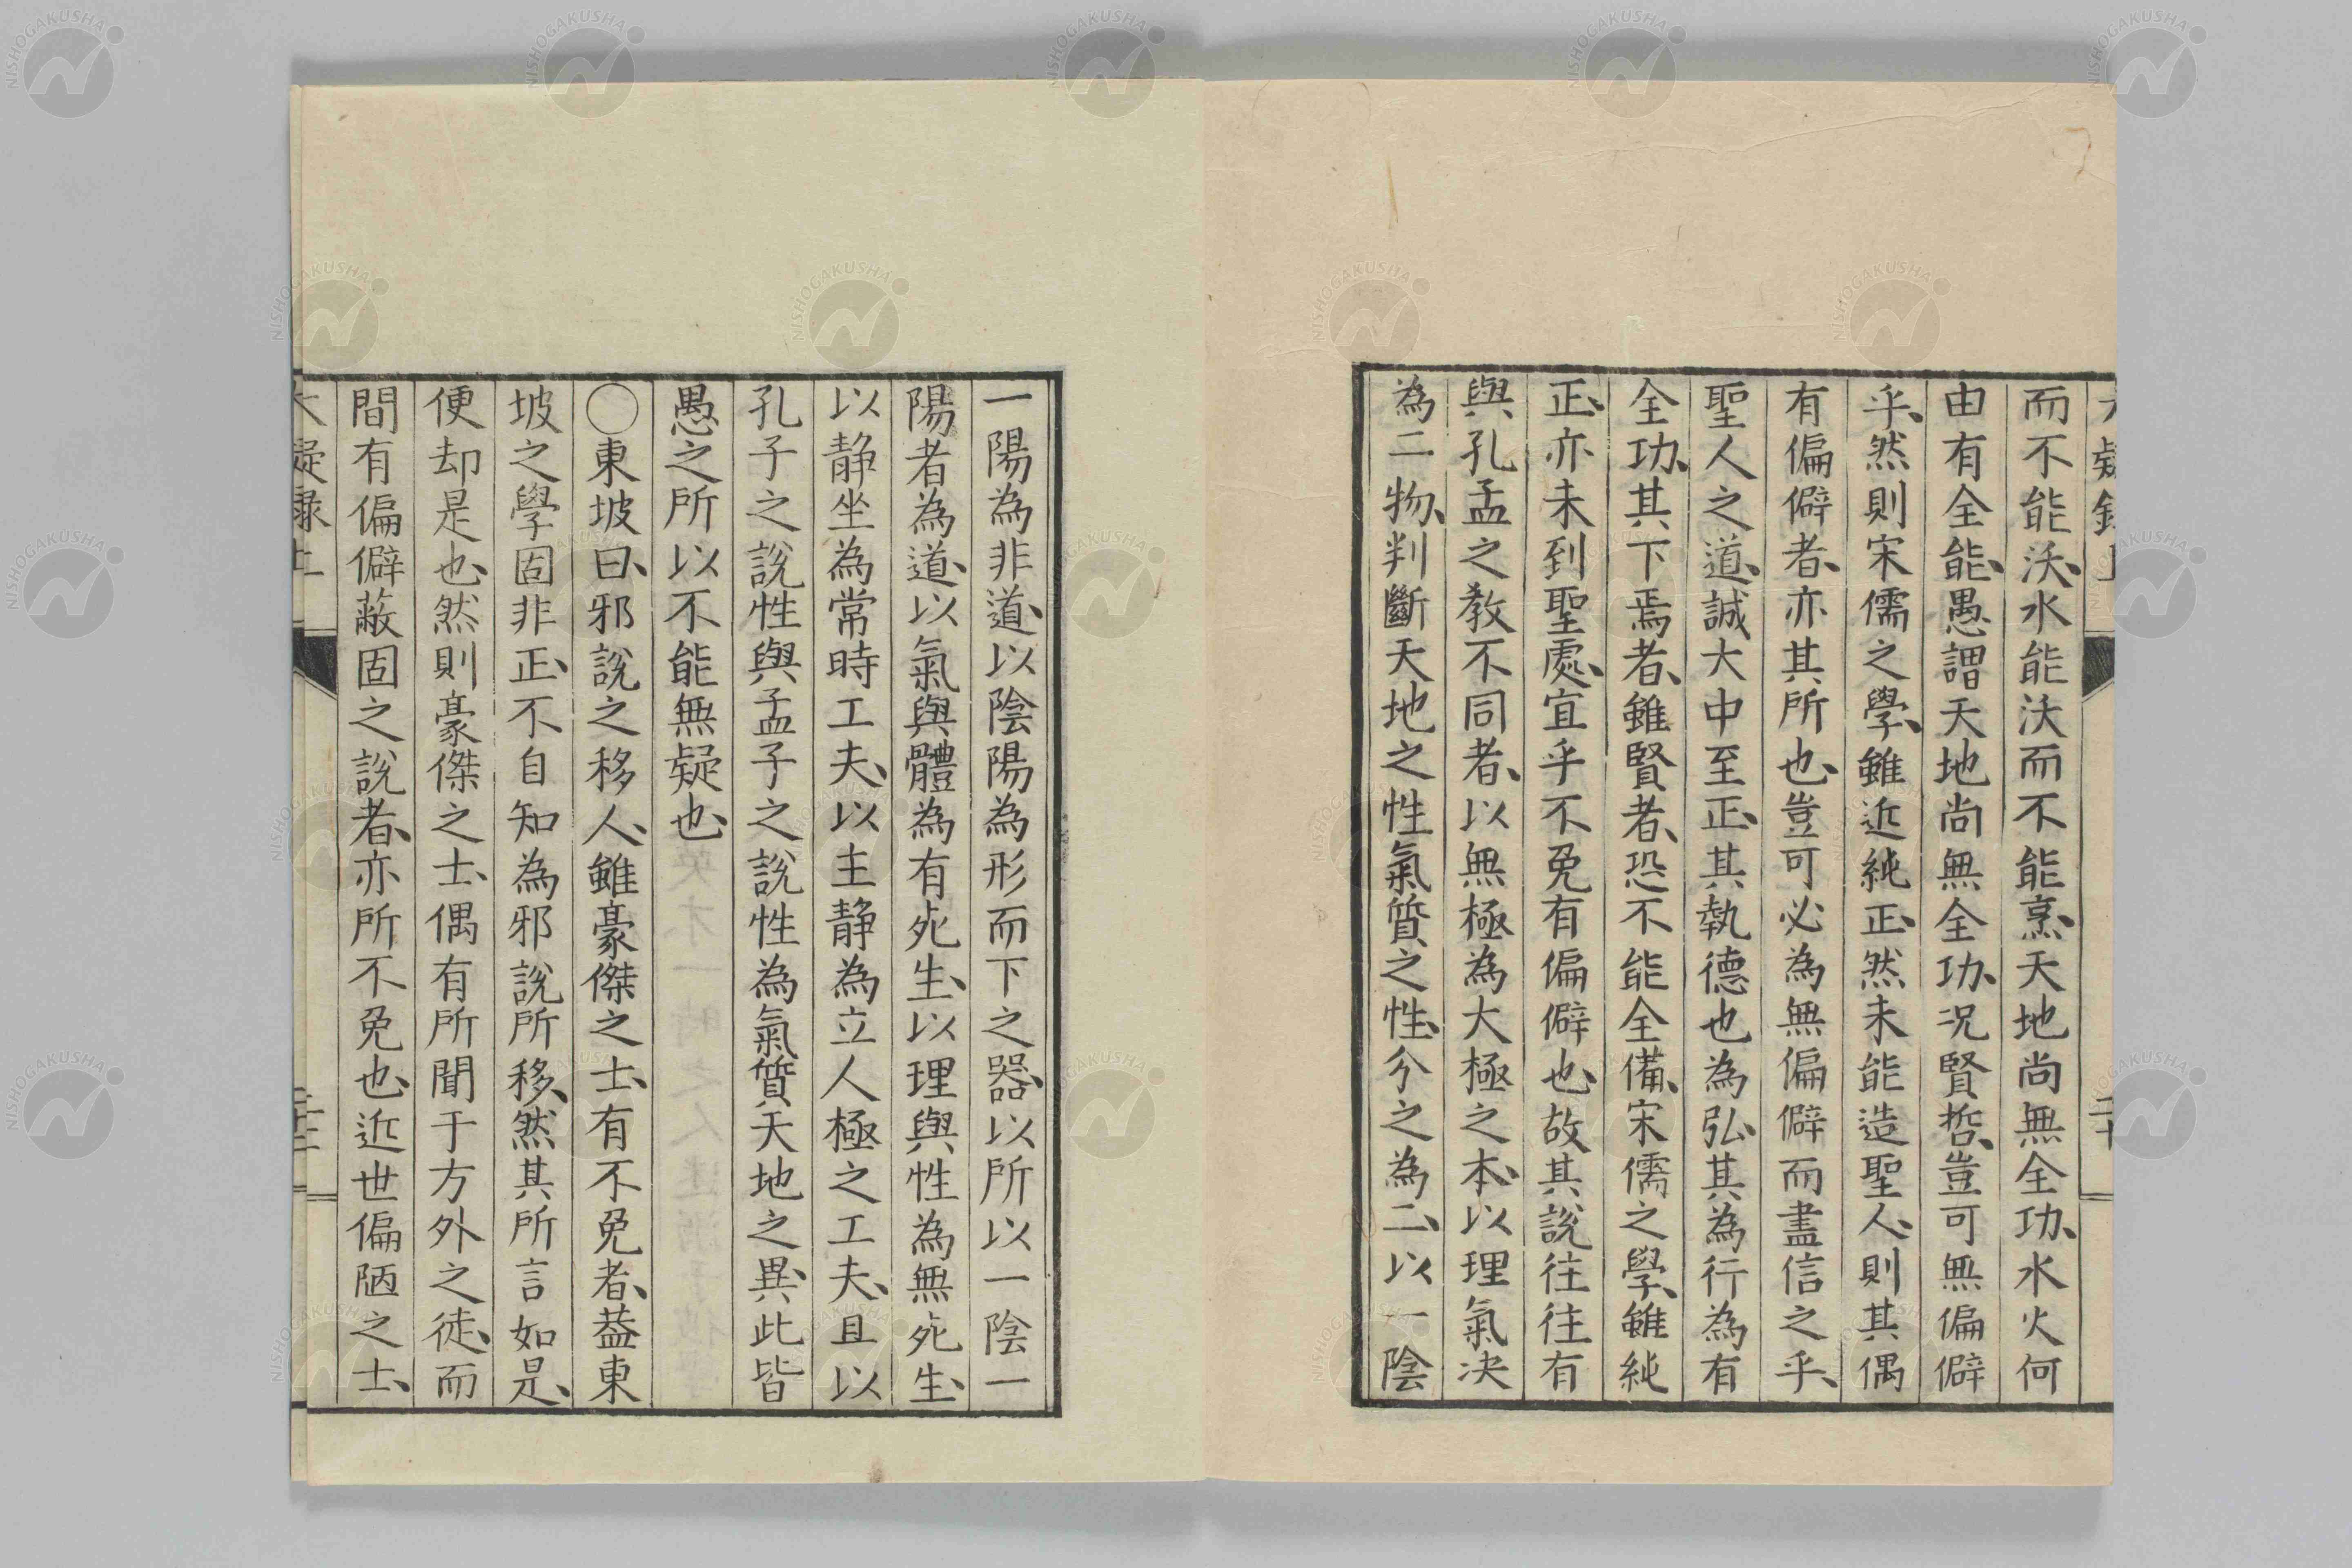 而不能沃、水能沃而不能烹、天地尚無全功、水火何
由有全能、愚謂天地尚無全功、況賢哲、豈可無偏僻
乎、然則宋儒之學、雖近純正、然未能造聖人、則其偶
有偏僻者、亦其所也、豈可必為無偏僻而盡信之乎、
聖人之道、誠大中至正、其執德也為弘、其為行為有
全功、其下焉者、雖賢者、恐不能全備、宋儒之學、雖純
正、亦未到聖處、宜乎不免有偏僻也、故其說往往有
與孔孟之教不同者、以無極為大極之本、以理氣决
為二物、判斷天地之性氣質之性、分之為二、以一陰
一陽為非道、以陰陽為形而下之器、以所以一陰一
陽者為道、以氣與體為有死生、以理與性為無死生、
以静坐為常時工夫、以主静為立人極之工夫、且以
孔子之說性與孟子之說性為氣質天地之異、此皆
愚之所以不能無疑也、
○東坡曰、邪說之移人、雖豪傑之士、有不免者、葢東
坡之學固非正、不自知為邪說所移、然其所言如是、
便却是也、然則豪傑之士、偶有所聞于方外之徒、而
間有偏僻蔽固之說者、亦所不免也、近世偏陋之士、
大疑録上